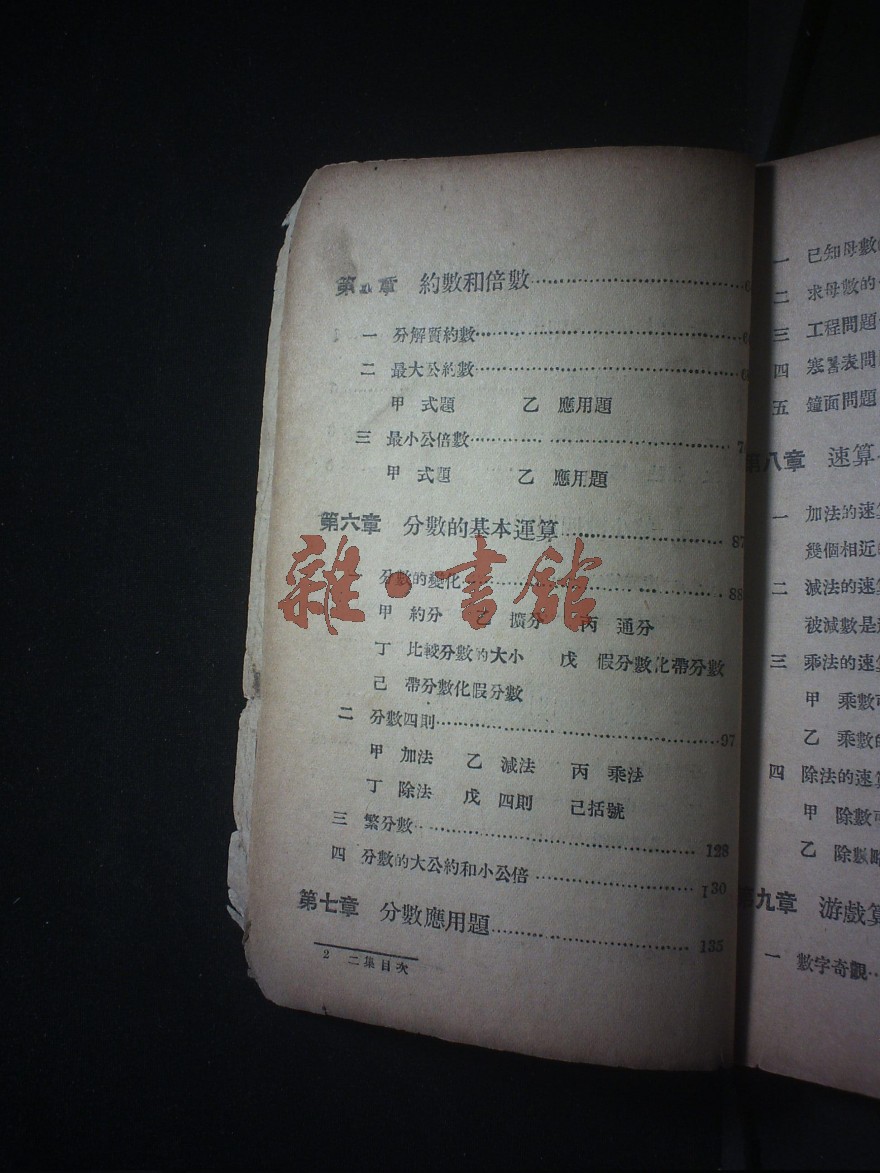 第五章 約數和倍數
一 分解質約數
二 最大公約數
甲 式題 乙 應用題
三 最小公倍數
甲 式題 乙 應用題
第六章 分數的基本運算 87
分數的變化 88
甲 約分 乙 擴分 丙 通分
丁 比較分數的大小 戊 假分數化帶分數
己 帶分數化假分數
二 分數四則 97
甲 加法 乙 減法 丙 乘法
丁 除法 戊 四則 己括號
三 繁分數 128
四 分數的大公約和小公倍 130
第七章 分數應用題 135
2 二集目次
雜·書館
一 已知母數
二 求母數的
三 工程問題
四 寒暑表問
五 鐘面問題
第八章 速算
一 加法的速算
幾個相近
二 減法的速算
被減數是
三 乘法的速
甲 乘數可
乙 乘數的
四 除法的速算
甲 除數可
乙 除數略
第九章 游戲算
一 數字奇觀